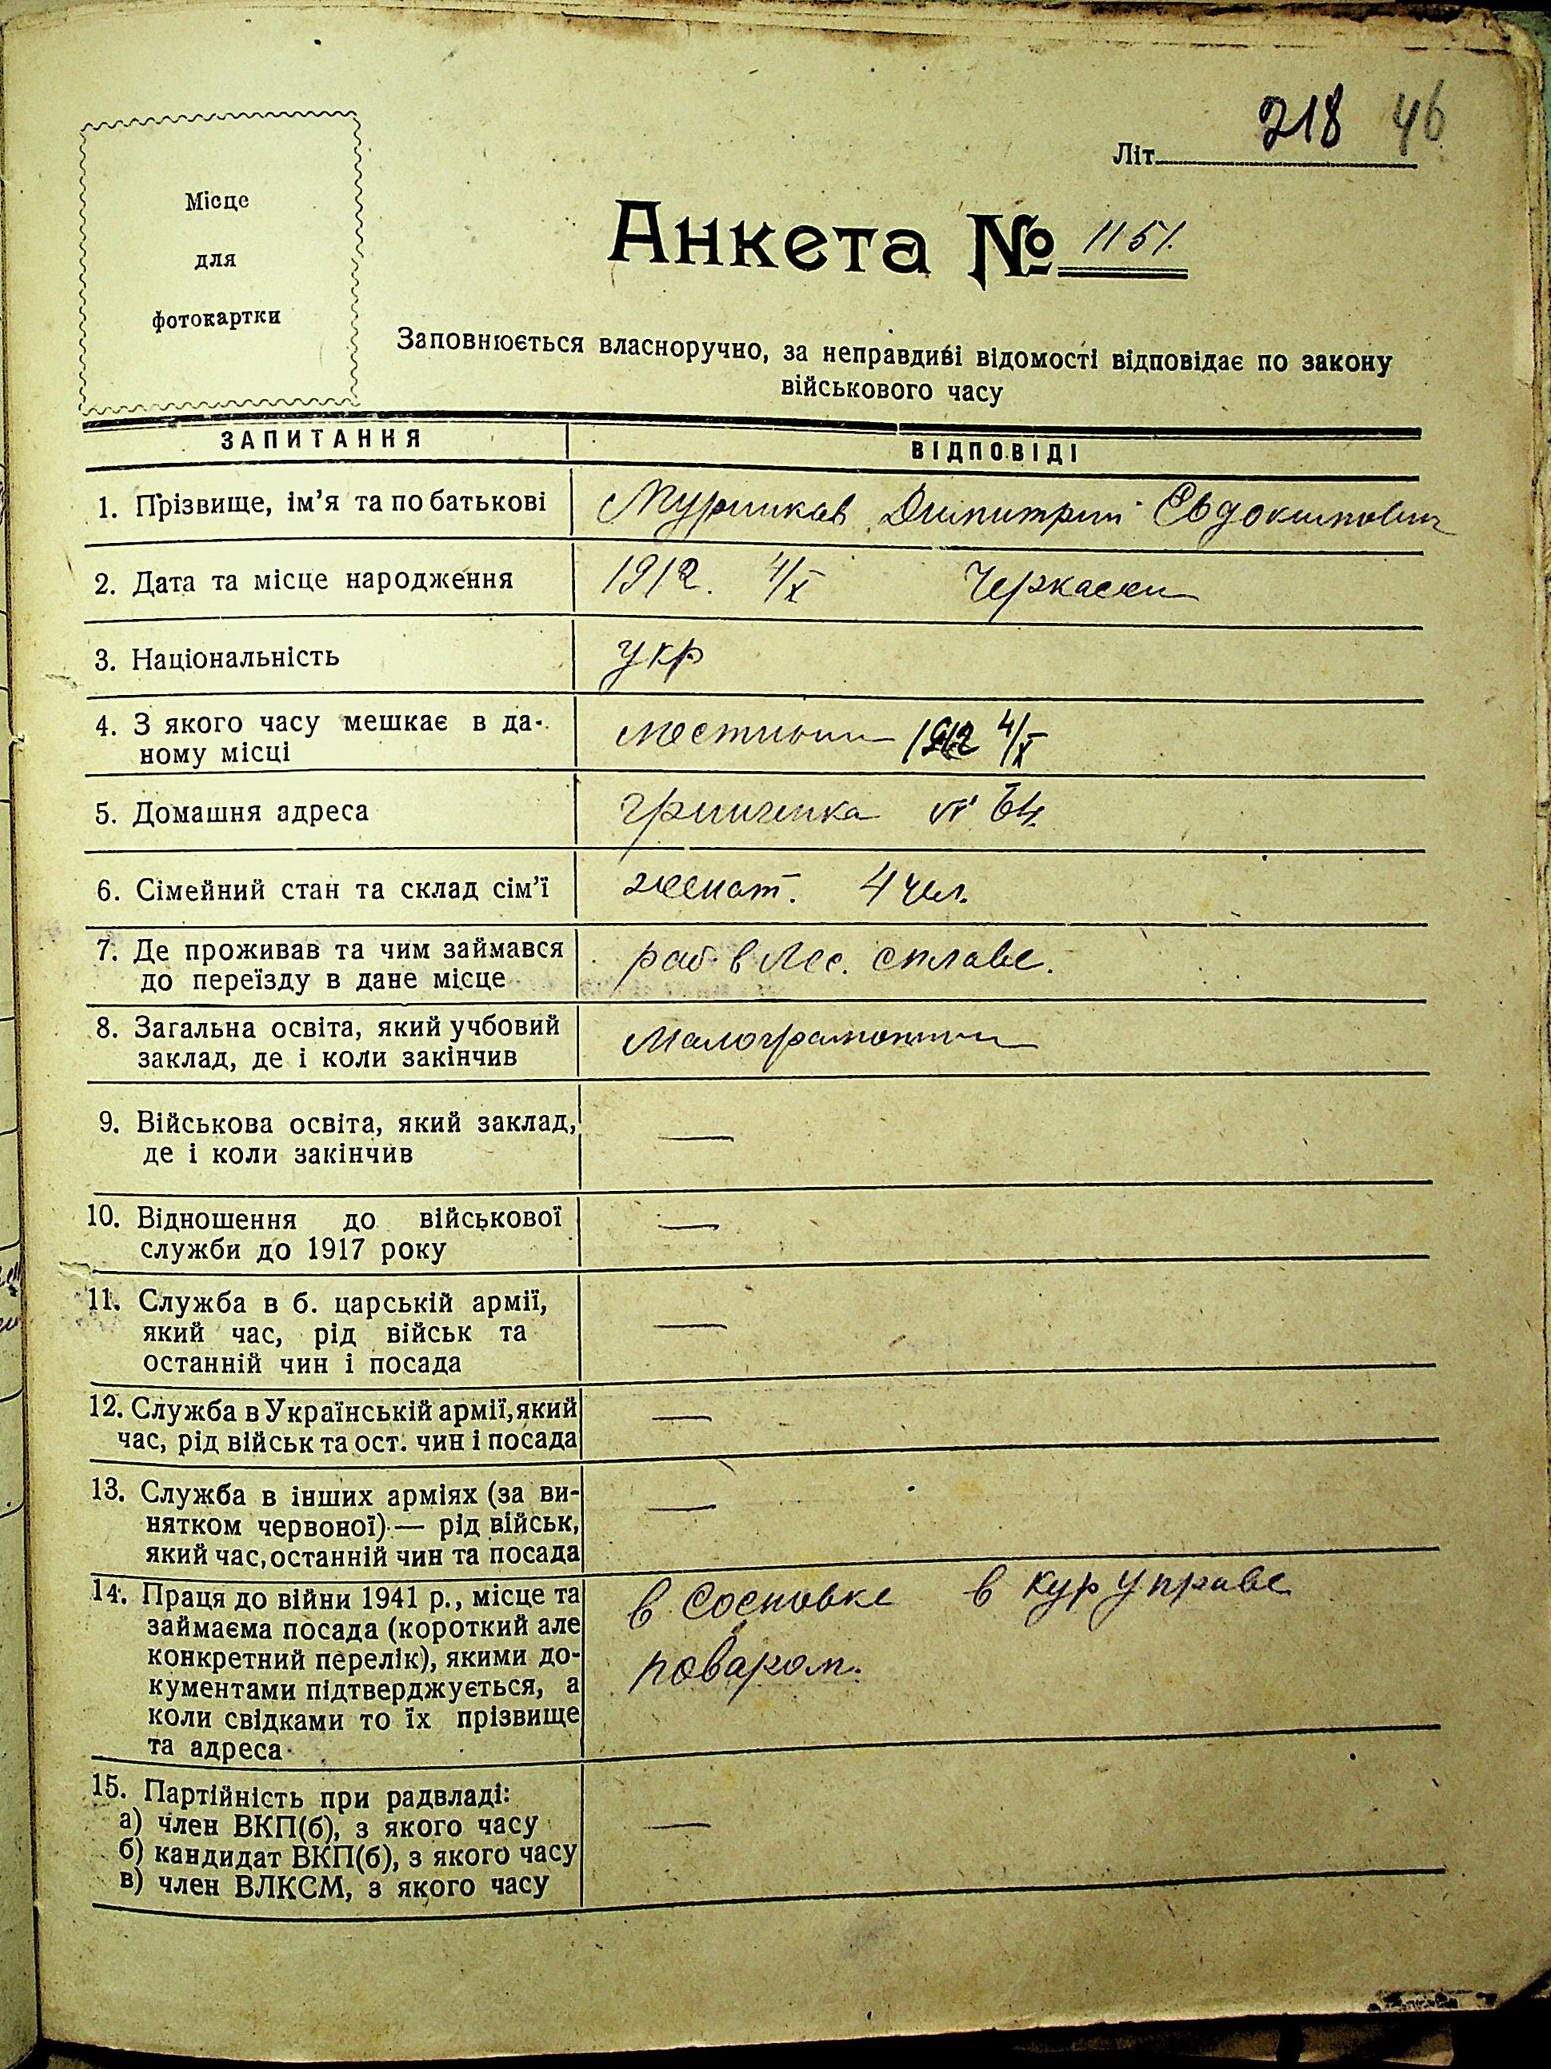 218 46
Літ.
Місце
для
фотокартки
Анкета № 1151.
Заповнюється власноручно, за неправдиві відомості відповідає по закону
військового часу
ЗАПИТАННЯ
ВІДПОВІДІ
1. Прізвище, ім’я та по батькові
Димитрий Евдокимович
2. Дата та місце народження
1912. 4/X Черкассы
3. Національність
укр
4. З якого часу мешкає в да-
ному місці
местный 1912 4/X
5. Домашня адреса
Гринченка № 64.
6. Сімейний стан та склад сім’ї
женат. 4 чел.
7. Де проживав та чим займався
до переїзду в дане місце
раб. в Лес. сплаве.
8. Загальна освіта, який учбовий
заклад, де і коли закінчив
Малограмотный
9. Військова освіта, який заклад,
де і коли закінчив
—
10. Відношення до військової
служби до 1917 року
—
11. Служба в б. царській армії,
який час, рід військ та
останній чин і посада
—
12. Служба в Українській армії, який
час, рід військ та ост. чин і посада
—
13. Служба в інших арміях (за ви-
нятком червоної) — рід військ,
який час, останній чин та посада
—
14. Праця до війни 1941 р., місце та
займаєма посада (короткий але
конкретний перелік), якими до-
кументами підтверджується, а
коли свідками то їх прізвище
та адреса
в Сосновке в кур управе
поваром.
15. Партійність при радвладі:
а) член ВКП(б), з якого часу
б) кандидат ВКП(б), з якого часу
в) член ВЛКСМ, з якого часу
—